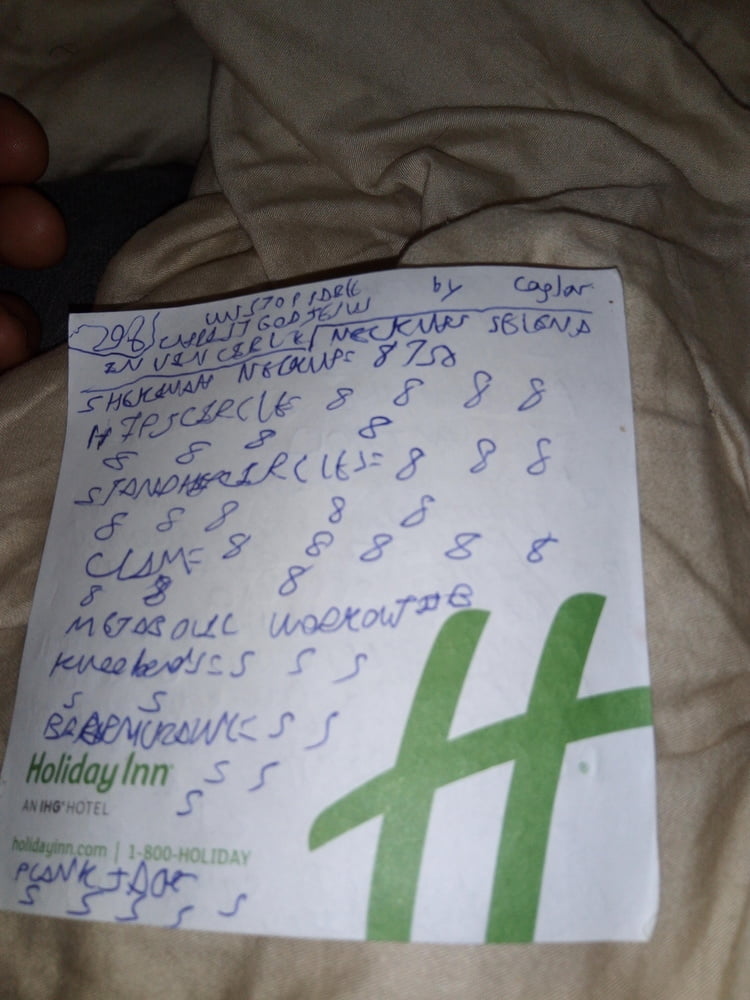 UNSTOPPABLE by Caglar
298
NECKUPS SELENA
SHEKINAH NECKUPS 8
HIPSCIRCLE 8 8 8 8
8 8 8 8
8 8 8
8 8 8 8 8
CLAM= 8 8 8 8 8
8 8 8
METABOLIC WORKOUT
Kneebends= 5 5 5
5 5
5 5
Holiday Inn 5 5
AN IHG HOTEL 5
holidayinn.com | 1-800-HOLIDAY
PLANK JACK
5 5 5 5 5